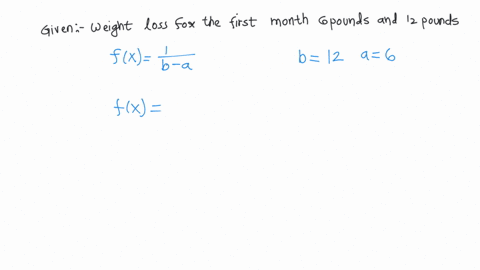 Given:- Weight loss fox the first month 6pounds and 12 pounds
f(x) = 1/(b-a) b = 12 a = 6
f(x) =